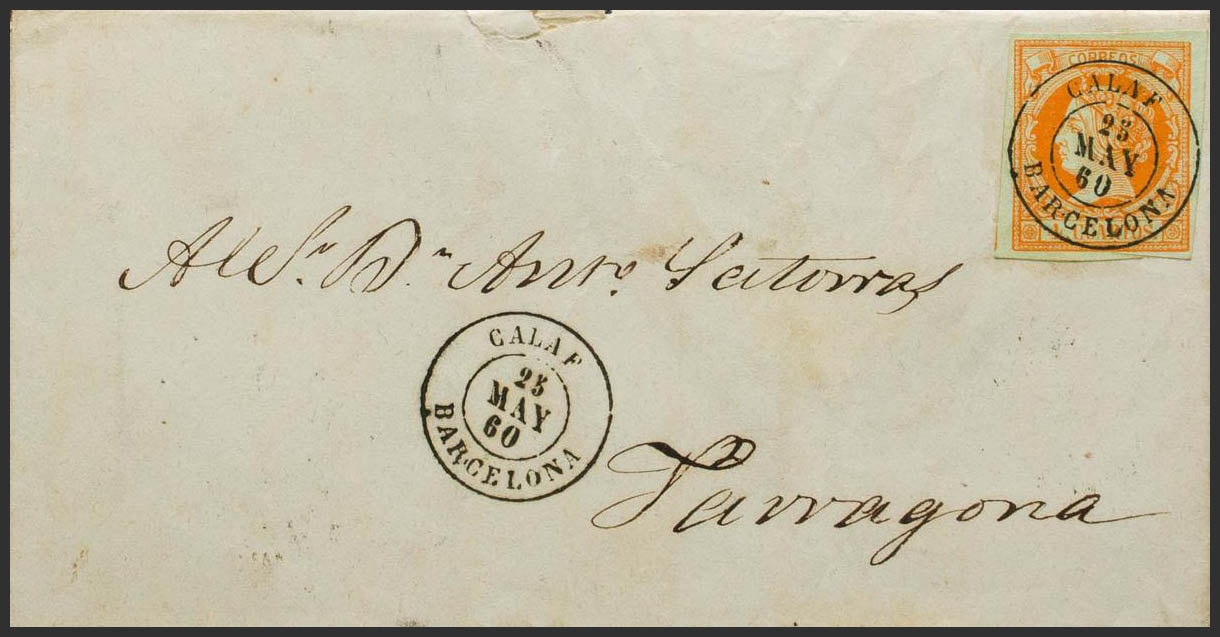 CORREOS
CALAF
23
MAY
60
BARCELONA
Al Sr. Dn. Anto. Satorras
CALAF
23
MAY
60
BARCELONA
Tarragona